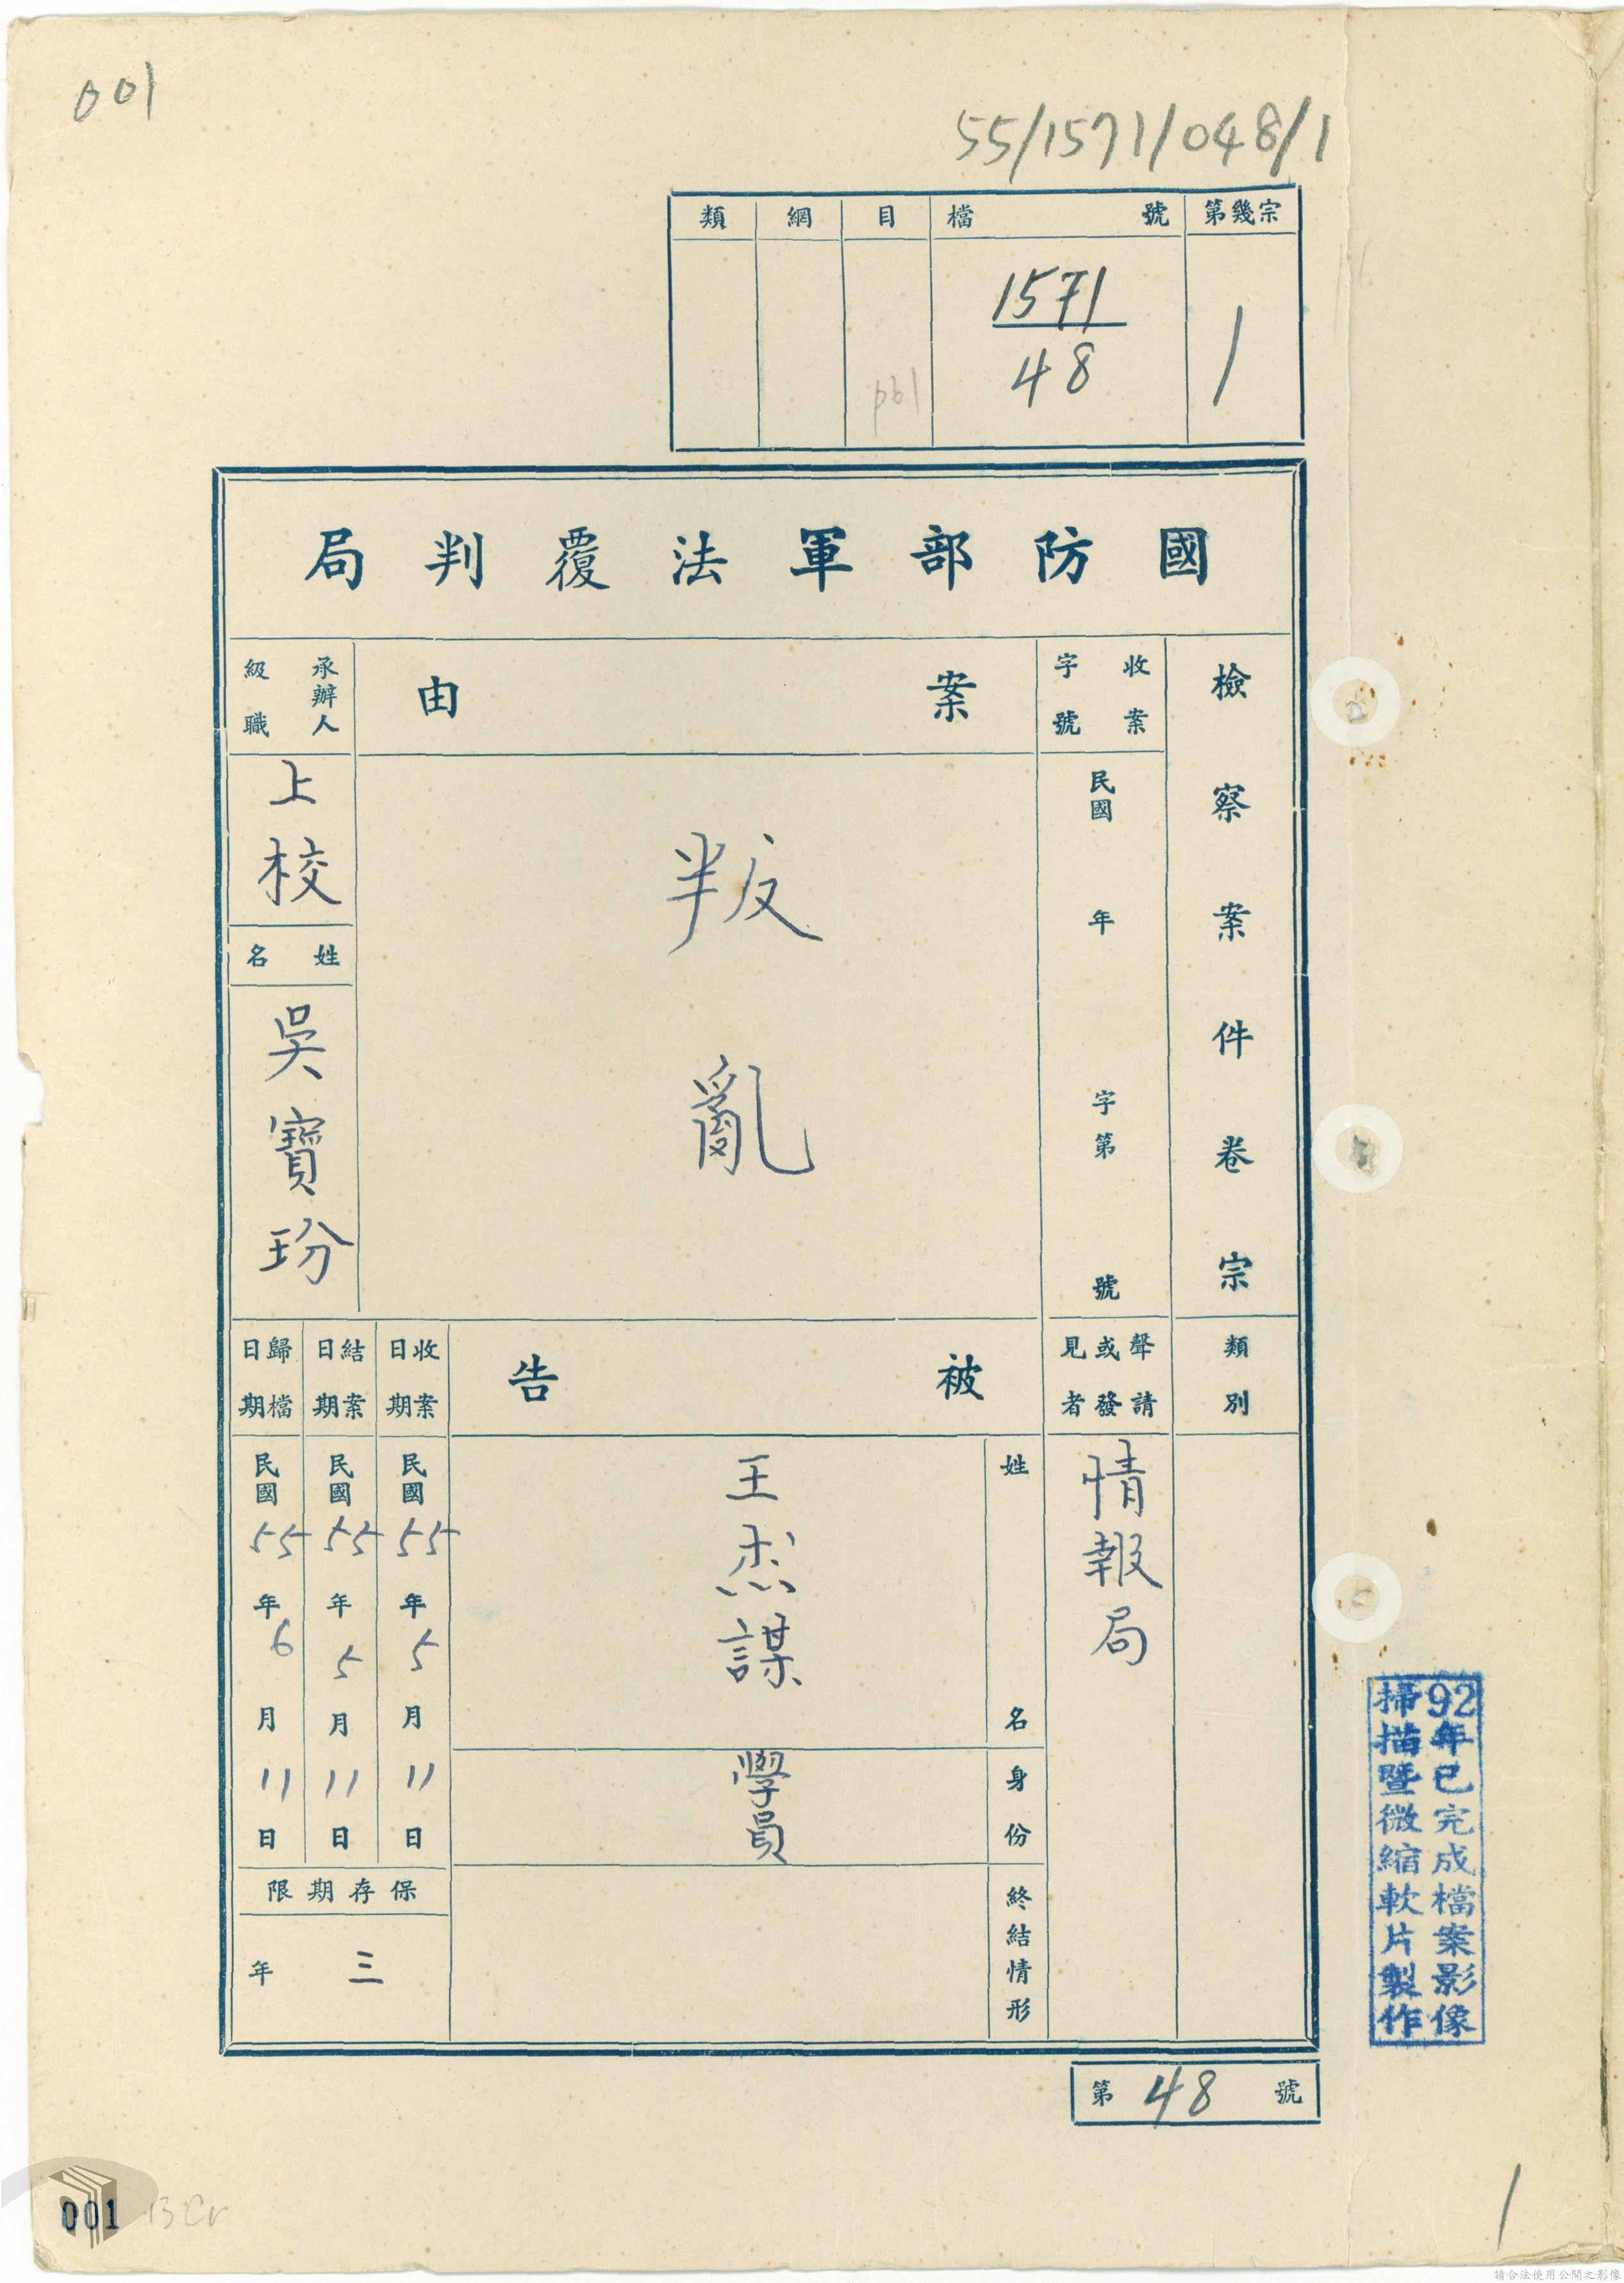 001
55/1571/048/1
類 綱 目 檔號 第幾宗
1571
48
1
國防部軍法覆判局
檢察案件卷宗
收案字號
民國 年 字第 號
案由
叛亂
承辦人級職
上校
姓名
吳寶玢
類別
聲請或發見者
情報局
被告
姓名
王杰謀
身份
學員
終結情形
收案日期
民國55年5月11日
結案日期
民國55年5月11日
歸檔日期
民國55年6月11日
保存期限
三年
第48號
92年已完成檔案影像
掃描暨微縮軟片製作
001
1
請合法使用公開之影像